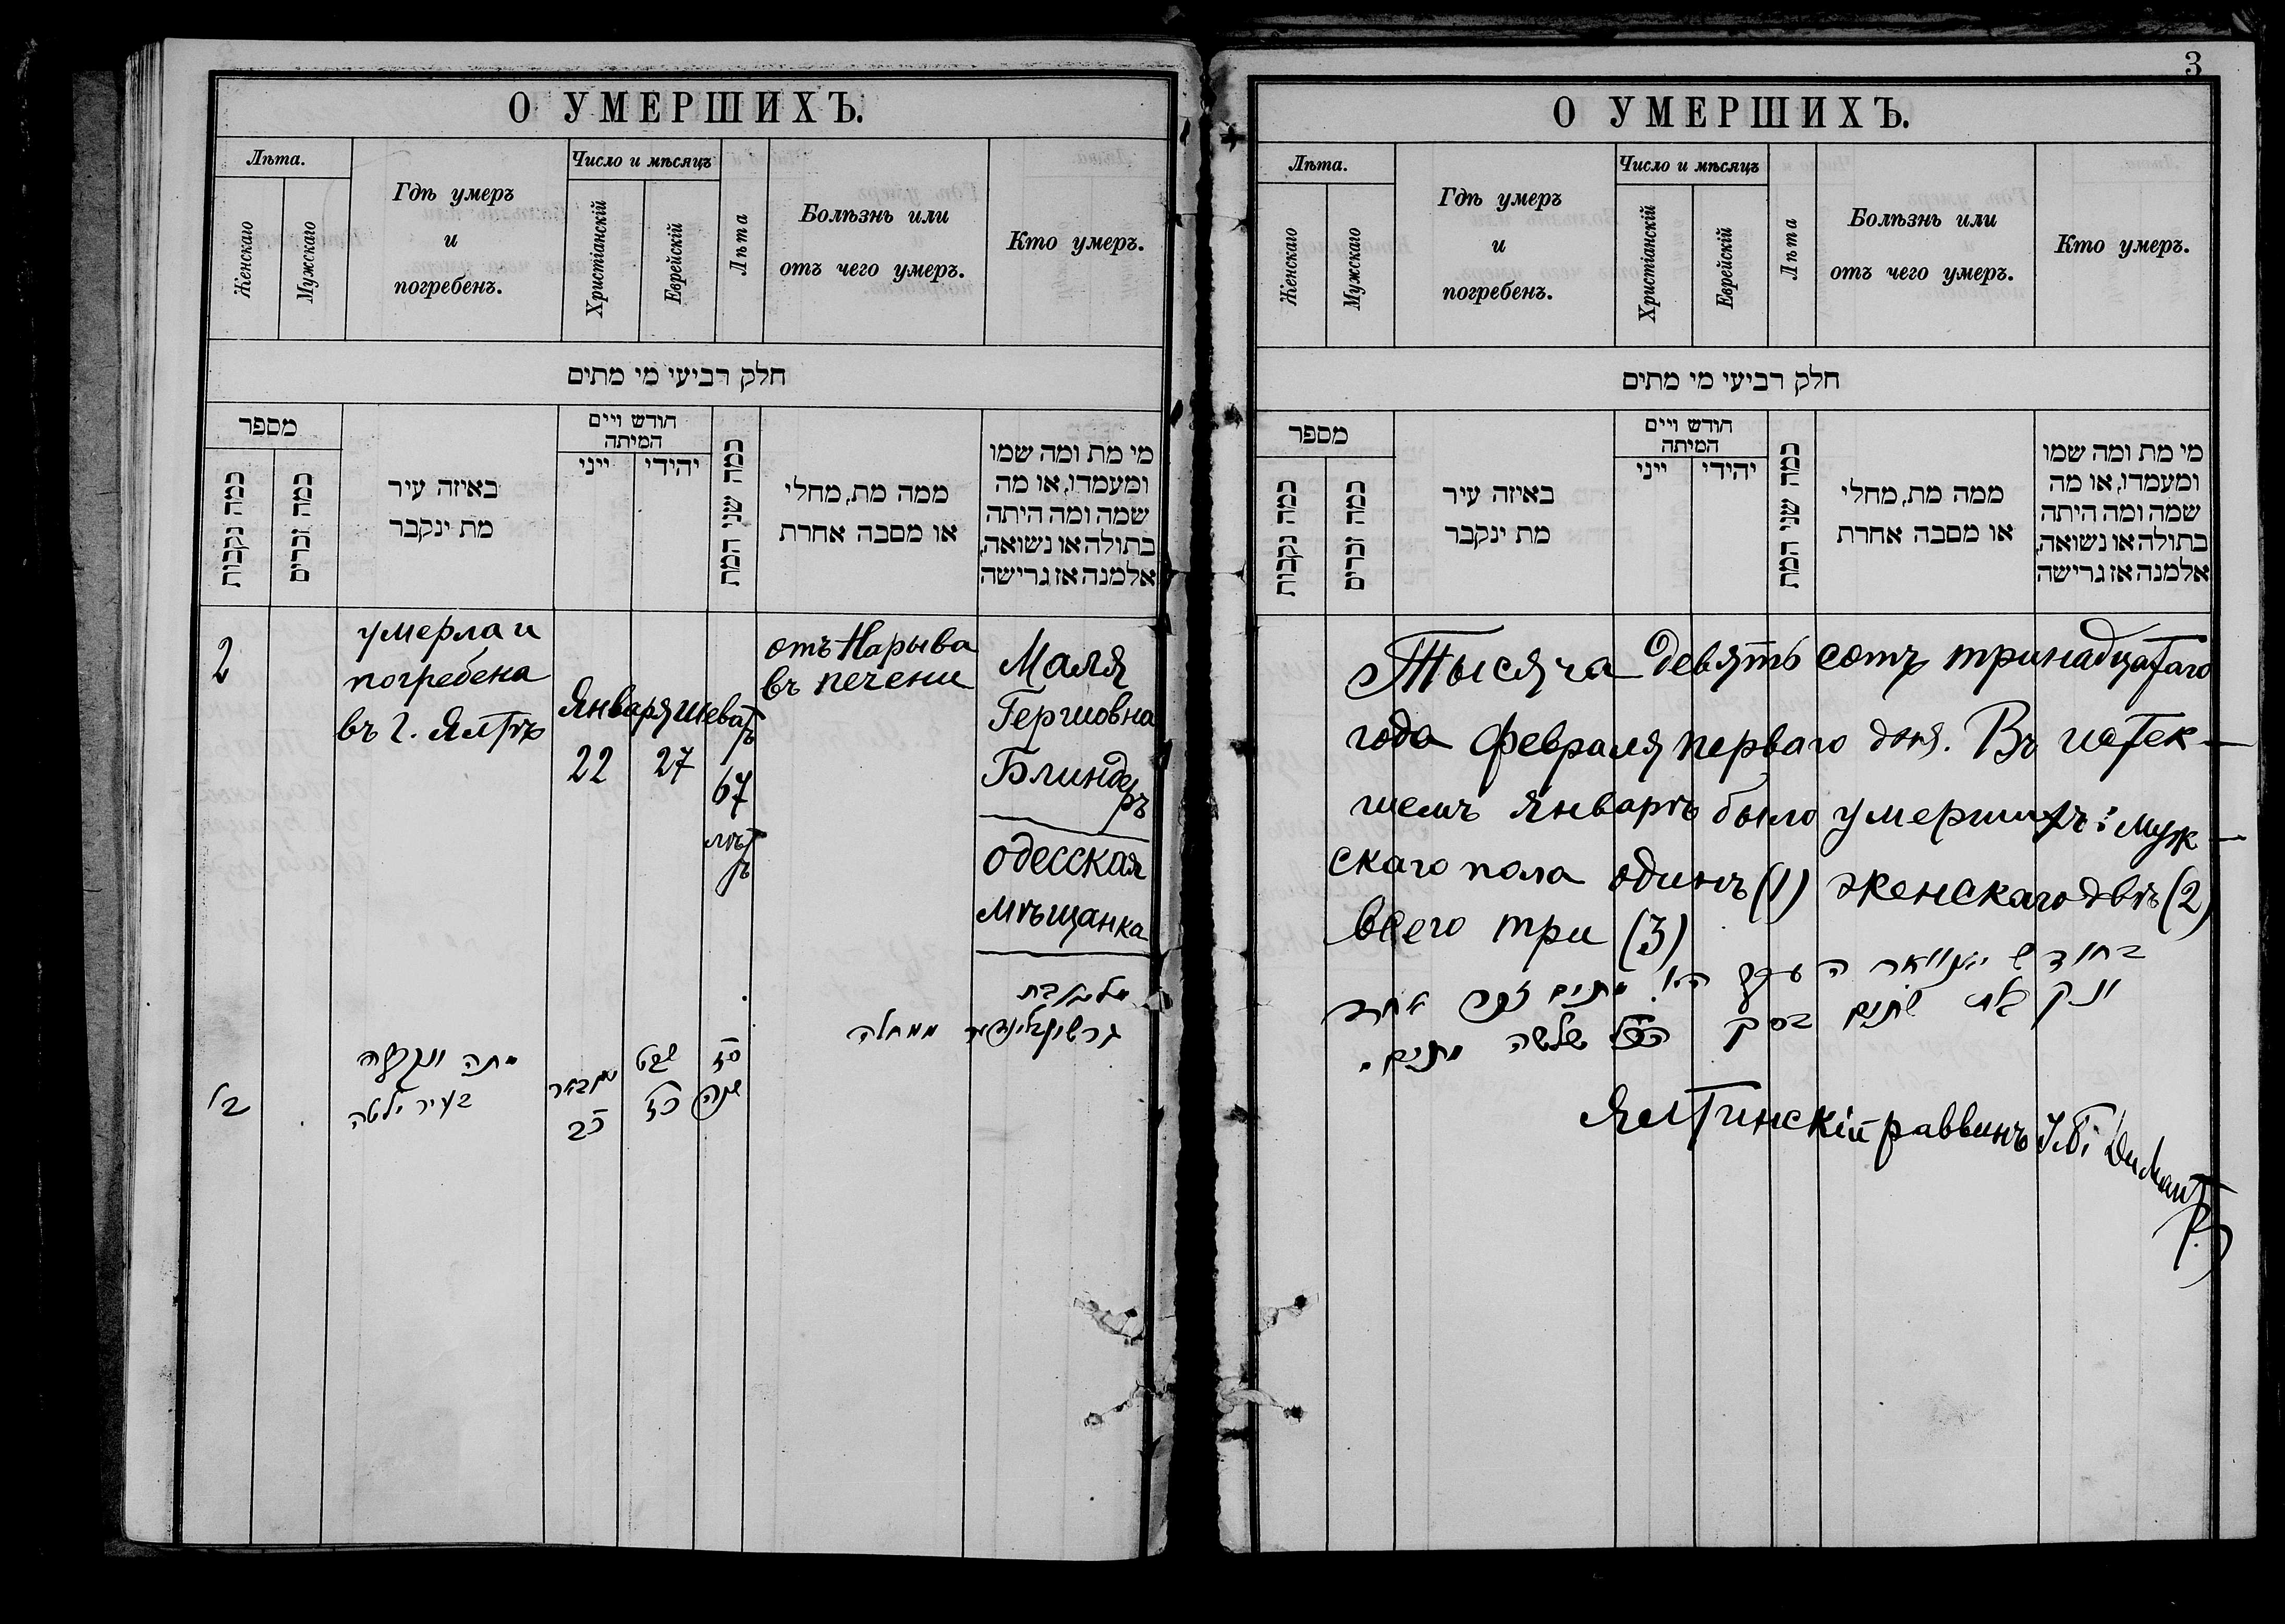 О УМЕРШИХЪ.
Лѣта.
Женскаго
Мужскаго
Гдѣ умеръ
и
погребенъ.
Число и мѣсяцъ
Христіанскій
Еврейскій
Лѣта
Болѣзнь или
отъ чего умеръ.
Кто умеръ.
חלק רביעי מי מתים
מספר
כמה נקבות
כמה זכרים
באיזה עיר
מת ינקבר
חודש ויים
המיתה
ייני
יהידי
כמה שני המת
ממה מת, מחלי
או מסבה אחרת
מי מת ומה שמו
ומעמדו, או מה
שמה ומה היתה
בתולה או נשואה,
אלמנה אז גרישה
2
умерла и
погребена
въ г. Ялтѣ
Января
22
шеватъ
27
67
лѣтъ
отъ Нарыва
въ печени
Маля
Гершовна
Блиндеръ
одесская
мѣщанка
ב׳
מתה ונקברה
בעיר ילטה
ינואר
כב
שבט
כז
סז
שנה
ממחלה
3
О УМЕРШИХЪ.
Лѣта.
Женскаго
Мужскаго
Гдѣ умеръ
и
погребенъ.
Число и мѣсяцъ
Христіанскій
Еврейскій
Лѣта
Болѣзнь или
отъ чего умеръ.
Кто умеръ.
חלק רביעי מי מתים
מספר
כמה נקבות
כמה זכרים
באיזה עיר
מת ינקבר
חודש ויים
המיתה
ייני
יהידי
כמה שני המת
ממה מת, מחלי
או מסבה אחרת
מי מת ומה שמו
ומעמדו, או מה
שמה ומה היתה
בתולה או נשואה,
אלמנה אז גרישה
Тысяча девять сотъ тринадцатаго
года февраля перваго дня. Въ истек-
шемъ январѣ было умершихъ: муж-
скаго пола одинъ (1) женскаго двѣ (2)
всего три (3)
בחודש יאנואר מתים זכר אחד
שתים בסך הכל שלשה מתים.
Ялтинскій раввинъ